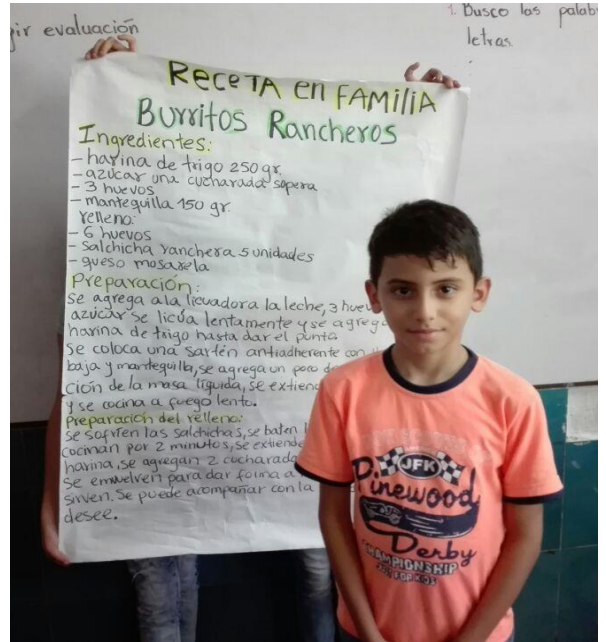 gir evaluación
1. Busco las palab
letras.
RECETA en FAMiliA
Burritos Rancheros
Ingredientes:
- harina de trigo 250 gr.
- azúcar una cucharada sopera
- 3 huevos
- mantequilla 150 gr.
relleno:
- 6 huevos
- salchicha ranchera 5 unidades
- queso mosarela
Preparación:
se agrega ala licuadora la leche, 3 huev
azúcar se licúa lentamente y se agreg
harina de trigo hasta dar el punto
se coloca una sartén antiadherente con
baja y mantequilla, se agrega un poco de
ción de la masa líquida, se extien
y se cocina a fuego lento.
Preparación del relleno:
se sofríen las salchichas, se baten
cocinan por 2 minutos, se extiende
harina, se agregan 2 cucharada
se envuelven para dar forma a
sirven. Se puede acompañar con la
desee.
JFK
Pinewood
Derby
CHAMPIONSHIP
FOR KIDS